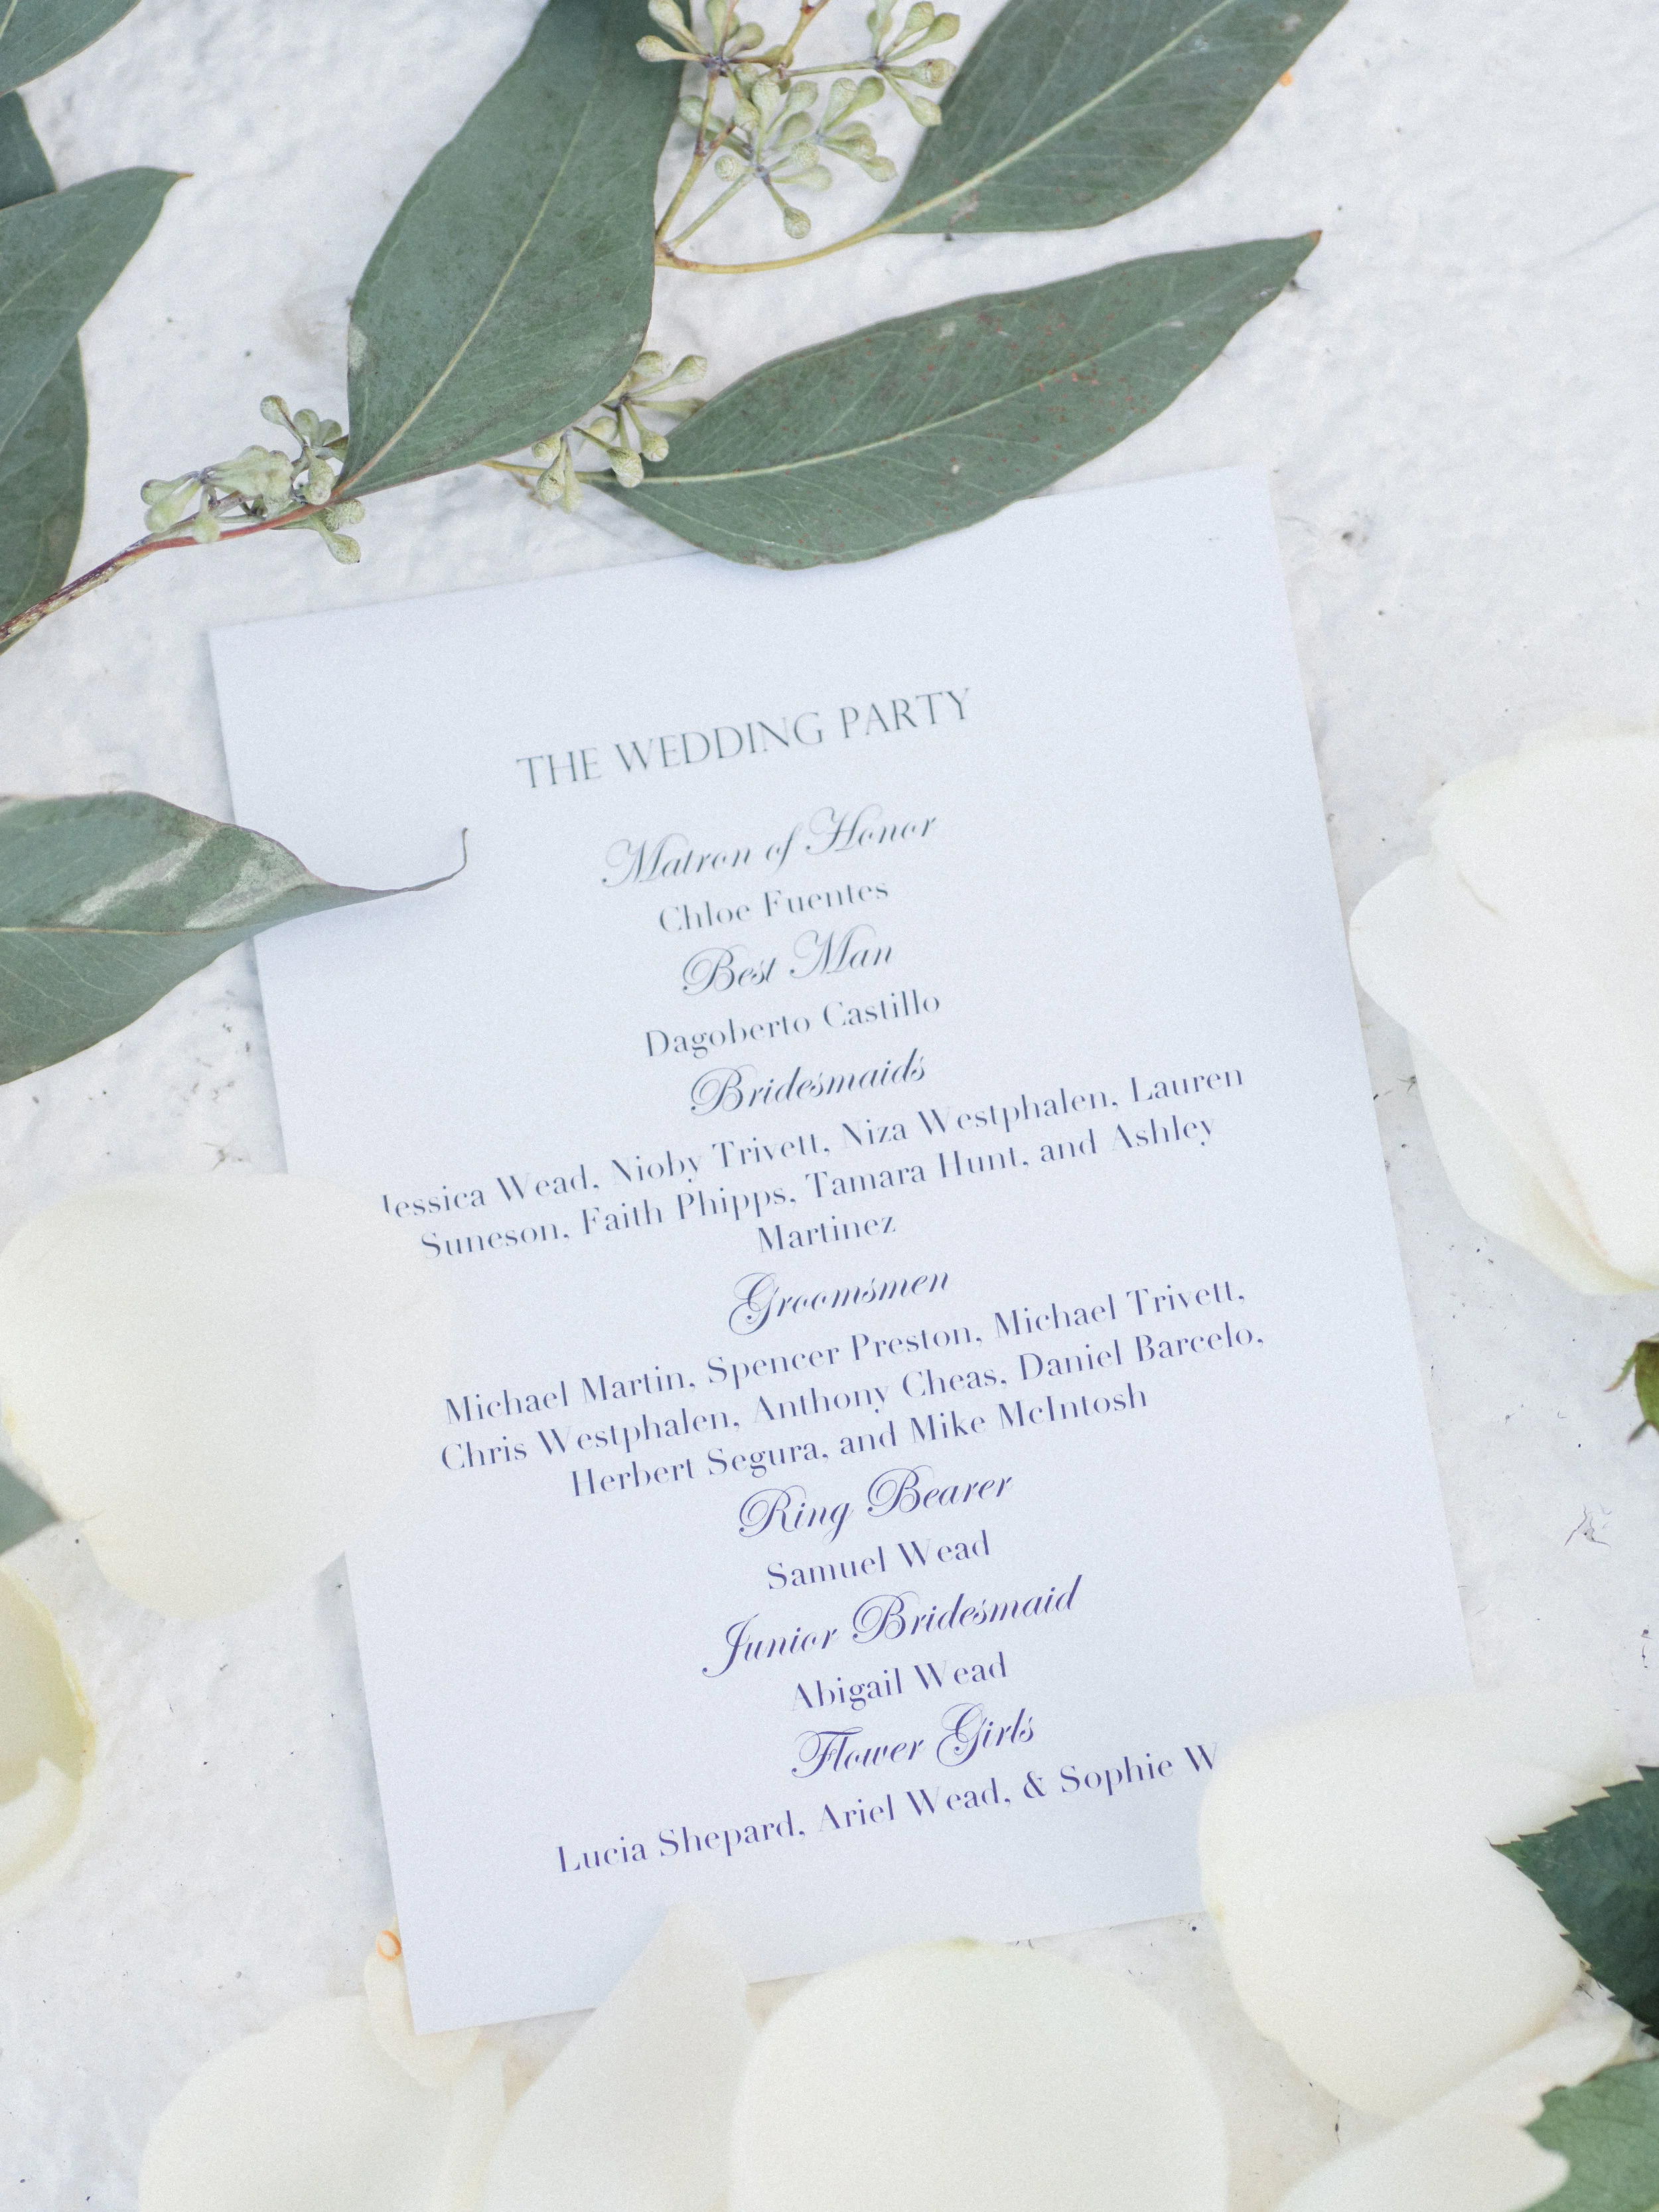 THE WEDDING PARTY
Matron of Honor
Chloe Fuentes
Best Man
Dagoberto Castillo
Bridesmaids
Jessica Wead, Nioby Trivett, Niza Westphalen, Lauren
Suneson, Faith Phipps, Tamara Hunt, and Ashley
Martinez
Groomsmen
Michael Martin, Spencer Preston, Michael Trivett,
Chris Westphalen, Anthony Cheas, Daniel Barcelo,
Herbert Segura, and Mike McIntosh
Ring Bearer
Samuel Wead
Junior Bridesmaid
Abigail Wead
Flower Girls
Lucia Shepard, Ariel Wead, & Sophie